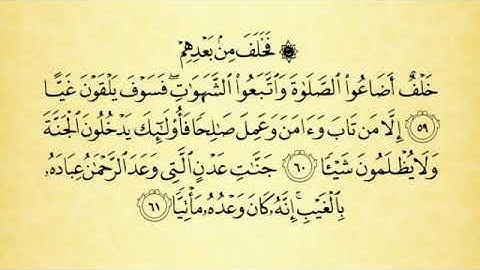 ۞ فَخَلَفَ مِنۢ بَعۡدِهِمۡ
خَلۡفٌ أَضَاعُواْ ٱلصَّلَوٰةَ وَٱتَّبَعُواْ ٱلشَّهَوَٰتِۖ فَسَوۡفَ يَلۡقَوۡنَ غَيًّا
٥٩ إِلَّا مَن تَابَ وَءَامَنَ وَعَمِلَ صَٰلِحٗا فَأُوْلَٰٓئِكَ يَدۡخُلُونَ ٱلۡجَنَّةَ
وَلَا يُظۡلَمُونَ شَيۡـٔٗا ٦٠ جَنَّٰتِ عَدۡنٍ ٱلَّتِي وَعَدَ ٱلرَّحۡمَٰنُ عِبَادَهُۥ
بِٱلۡغَيۡبِۚ إِنَّهُۥ كَانَ وَعۡدُهُۥ مَأۡتِيّٗا ٦١